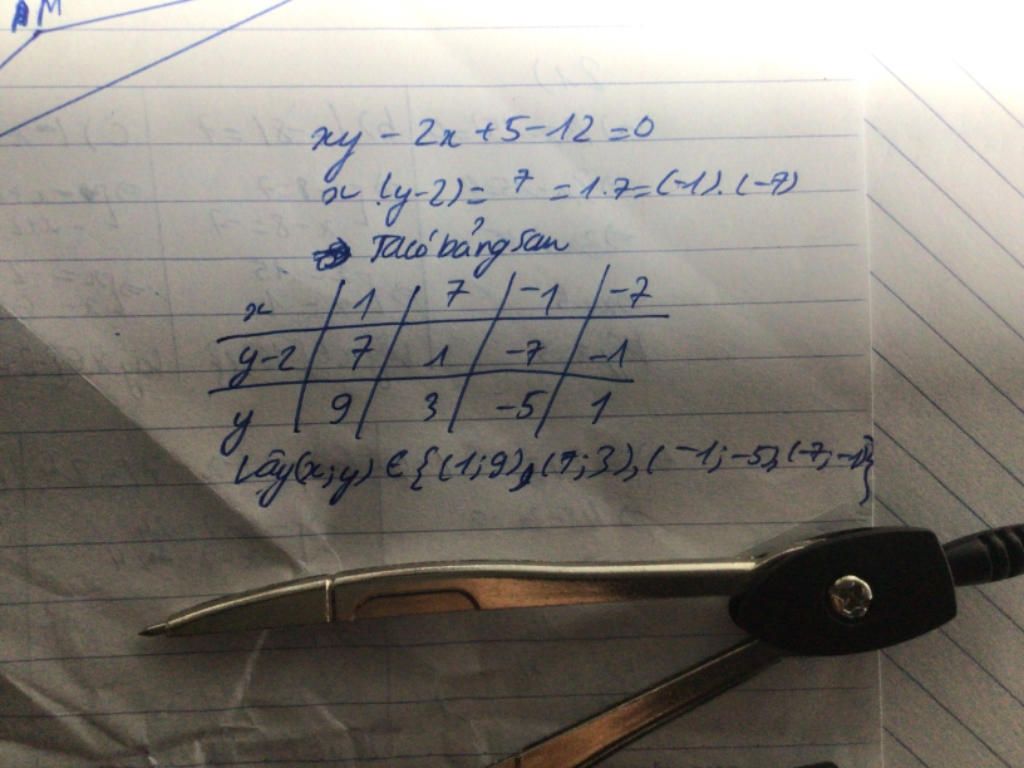 M
xy - 2x + 5 - 12 = 0
x . (y-2) = 7 = 1.7 = (-1).(-7)
Ta có bảng sau
x | 1 | 7 | -1 | -7
y-2 | 7 | 1 | -7 | -1
y | 9 | 3 | -5 | 1
Vậy (x;y) ∈ {(1;9),(7;3),(-1;-5),(-7;-1)}